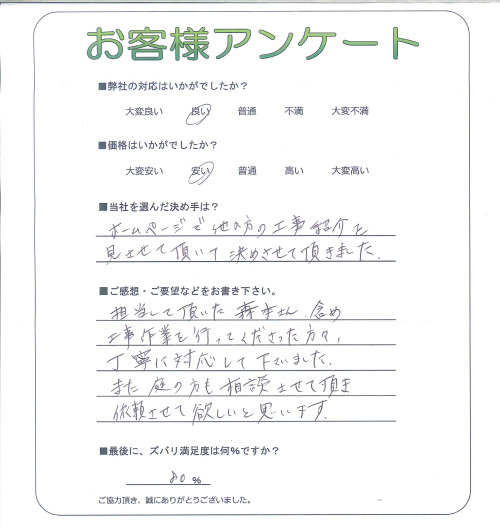 お客様アンケート
■弊社の対応はいかがでしたか？
大変良い 良い 普通 不満 大変不満
■価格はいかがでしたか？
大変安い 安い 普通 高い 大変高い
■当社を選んだ決め手は？
ホームページで他の方の工事紹介を
見させて頂いて決めさせて頂きました。
■ご感想・ご要望などをお書き下さい。
担当して頂いた森本さん含め
工事作業を行ってくださった方々、
丁寧に対応して下いました。
また庭の方も相談させて頂き
依頼させて欲しいと思います。
■最後に、ズバリ満足度は何%ですか？
80 %
ご協力頂き、誠にありがとうございました。